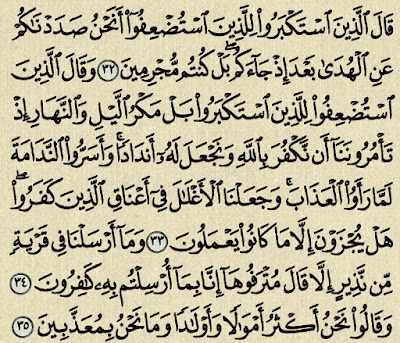 قَالَ ٱلَّذِينَ ٱسْتَكْبَرُوا۟ لِلَّذِينَ ٱسْتُضْعِفُوٓا۟ أَنَحْنُ صَدَدْنَـٰكُمْ
عَنِ ٱلْهُدَىٰ بَعْدَ إِذْ جَآءَكُم ۖ بَلْ كُنتُم مُّجْرِمِينَ ٣٢ وَقَالَ ٱلَّذِينَ
ٱسْتُضْعِفُوا۟ لِلَّذِينَ ٱسْتَكْبَرُوا۟ بَلْ مَكْرُ ٱلَّيْلِ وَٱلنَّهَارِ إِذْ
تَأْمُرُونَنَآ أَن نَّكْفُرَ بِٱللَّهِ وَنَجْعَلَ لَهُۥٓ أَندَادًا ۚ وَأَسَرُّوا۟ ٱلنَّدَامَةَ
لَمَّا رَأَوُا۟ ٱلْعَذَابَ ۚ وَجَعَلْنَا ٱلْأَغْلَـٰلَ فِىٓ أَعْنَاقِ ٱلَّذِينَ كَفَرُوا۟ ۖ
هَلْ يُجْزَوْنَ إِلَّا مَا كَانُوا۟ يَعْمَلُونَ ٣٣ وَمَآ أَرْسَلْنَا فِى قَرْيَةٍ
مِّن نَّذِيرٍ إِلَّا قَالَ مُتْرَفُوهَآ إِنَّا بِمَآ أُرْسِلْتُم بِهِۦ كَـٰفِرُونَ ٣٤
وَقَالُوا۟ نَحْنُ أَكْثَرُ أَمْوَٰلًا وَأَوْلَـٰدًا وَمَا نَحْنُ بِمُعَذَّبِينَ ٣٥